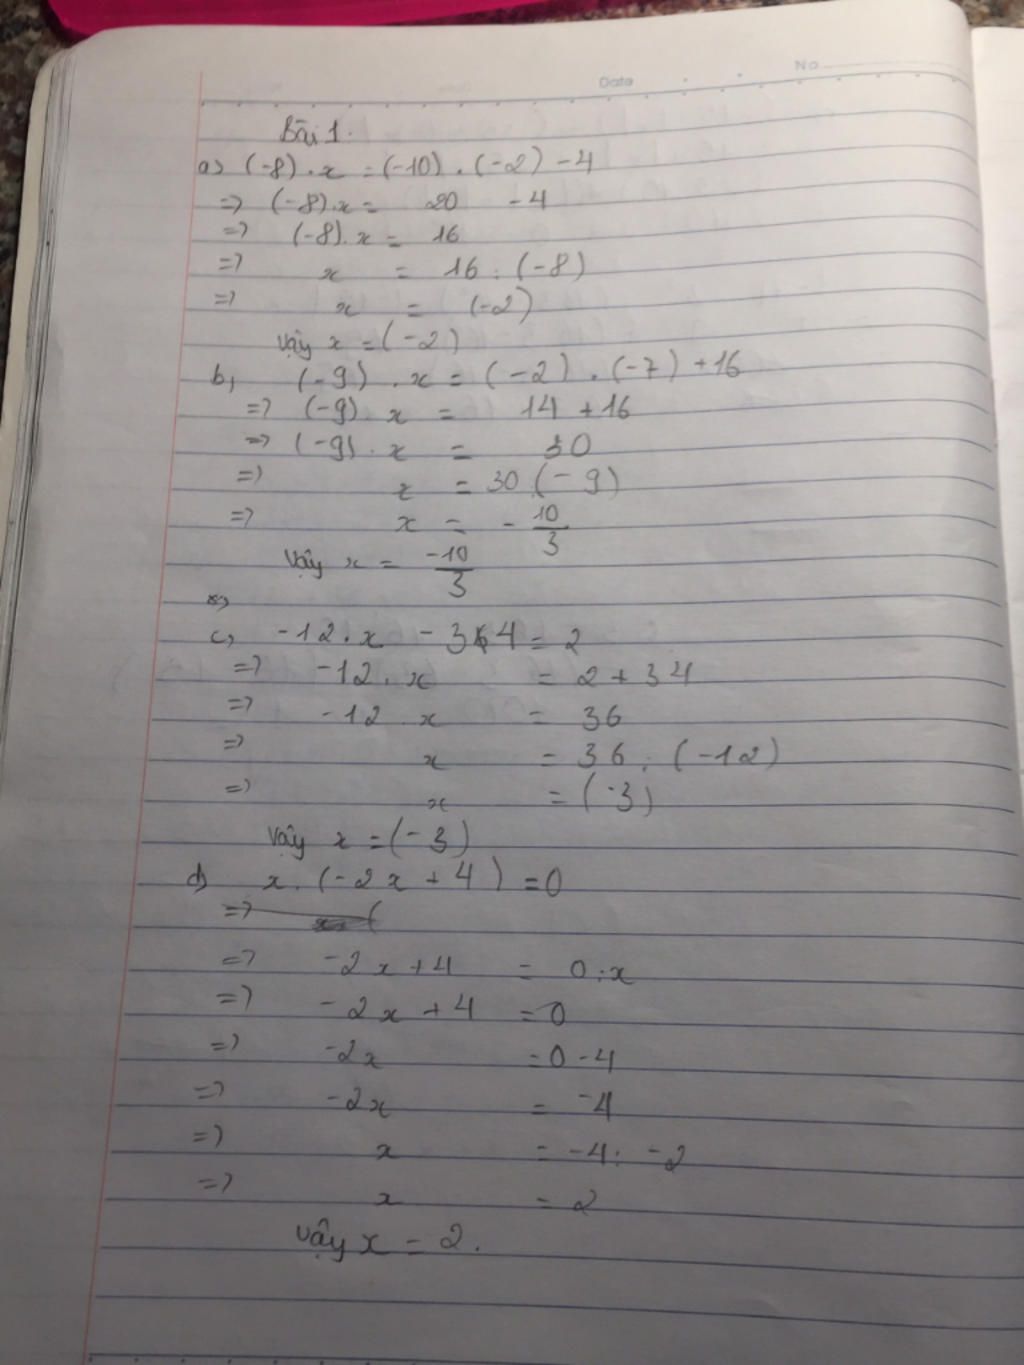 Date No
Bài 1.
a) (-8) . x = (-10) . (-2) - 4
=> (-8).x = 20 - 4
=> (-8). x = 16
=> x = 16 : (-8)
=> x = (-2)
Vậy x = (-2)
b, (-9) . x = (-2) . (-7) + 16
=> (-9). x = 14 + 16
=> (-9) . x = 30
=> x = 30 (-9)
=> x = - 10/3
Vậy x = -10/3
c, -12 . x - 34 = 2
=> -12 . x = 2 + 34
=> -12 . x = 36
=> x = 36 : (-12)
=> x = (-3)
Vậy x = (-3)
d) x. (-2x + 4) = 0
=> (
=> -2x + 4 = 0 : x
=> -2x + 4 = 0
=> -2x = 0 - 4
=> -2x = -4
=> x = -4 : -2
=> x = 2
Vậy x = 2.